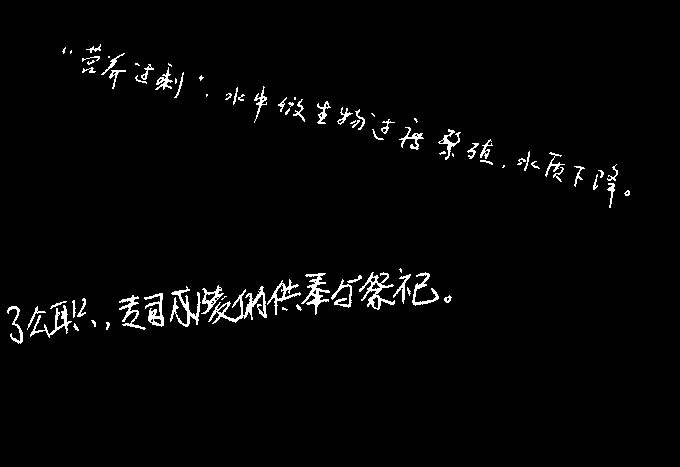 “营养过剩”，水中微生物过度繁殖，水质下降。
了公职，专司成陵的供奉与祭祀。